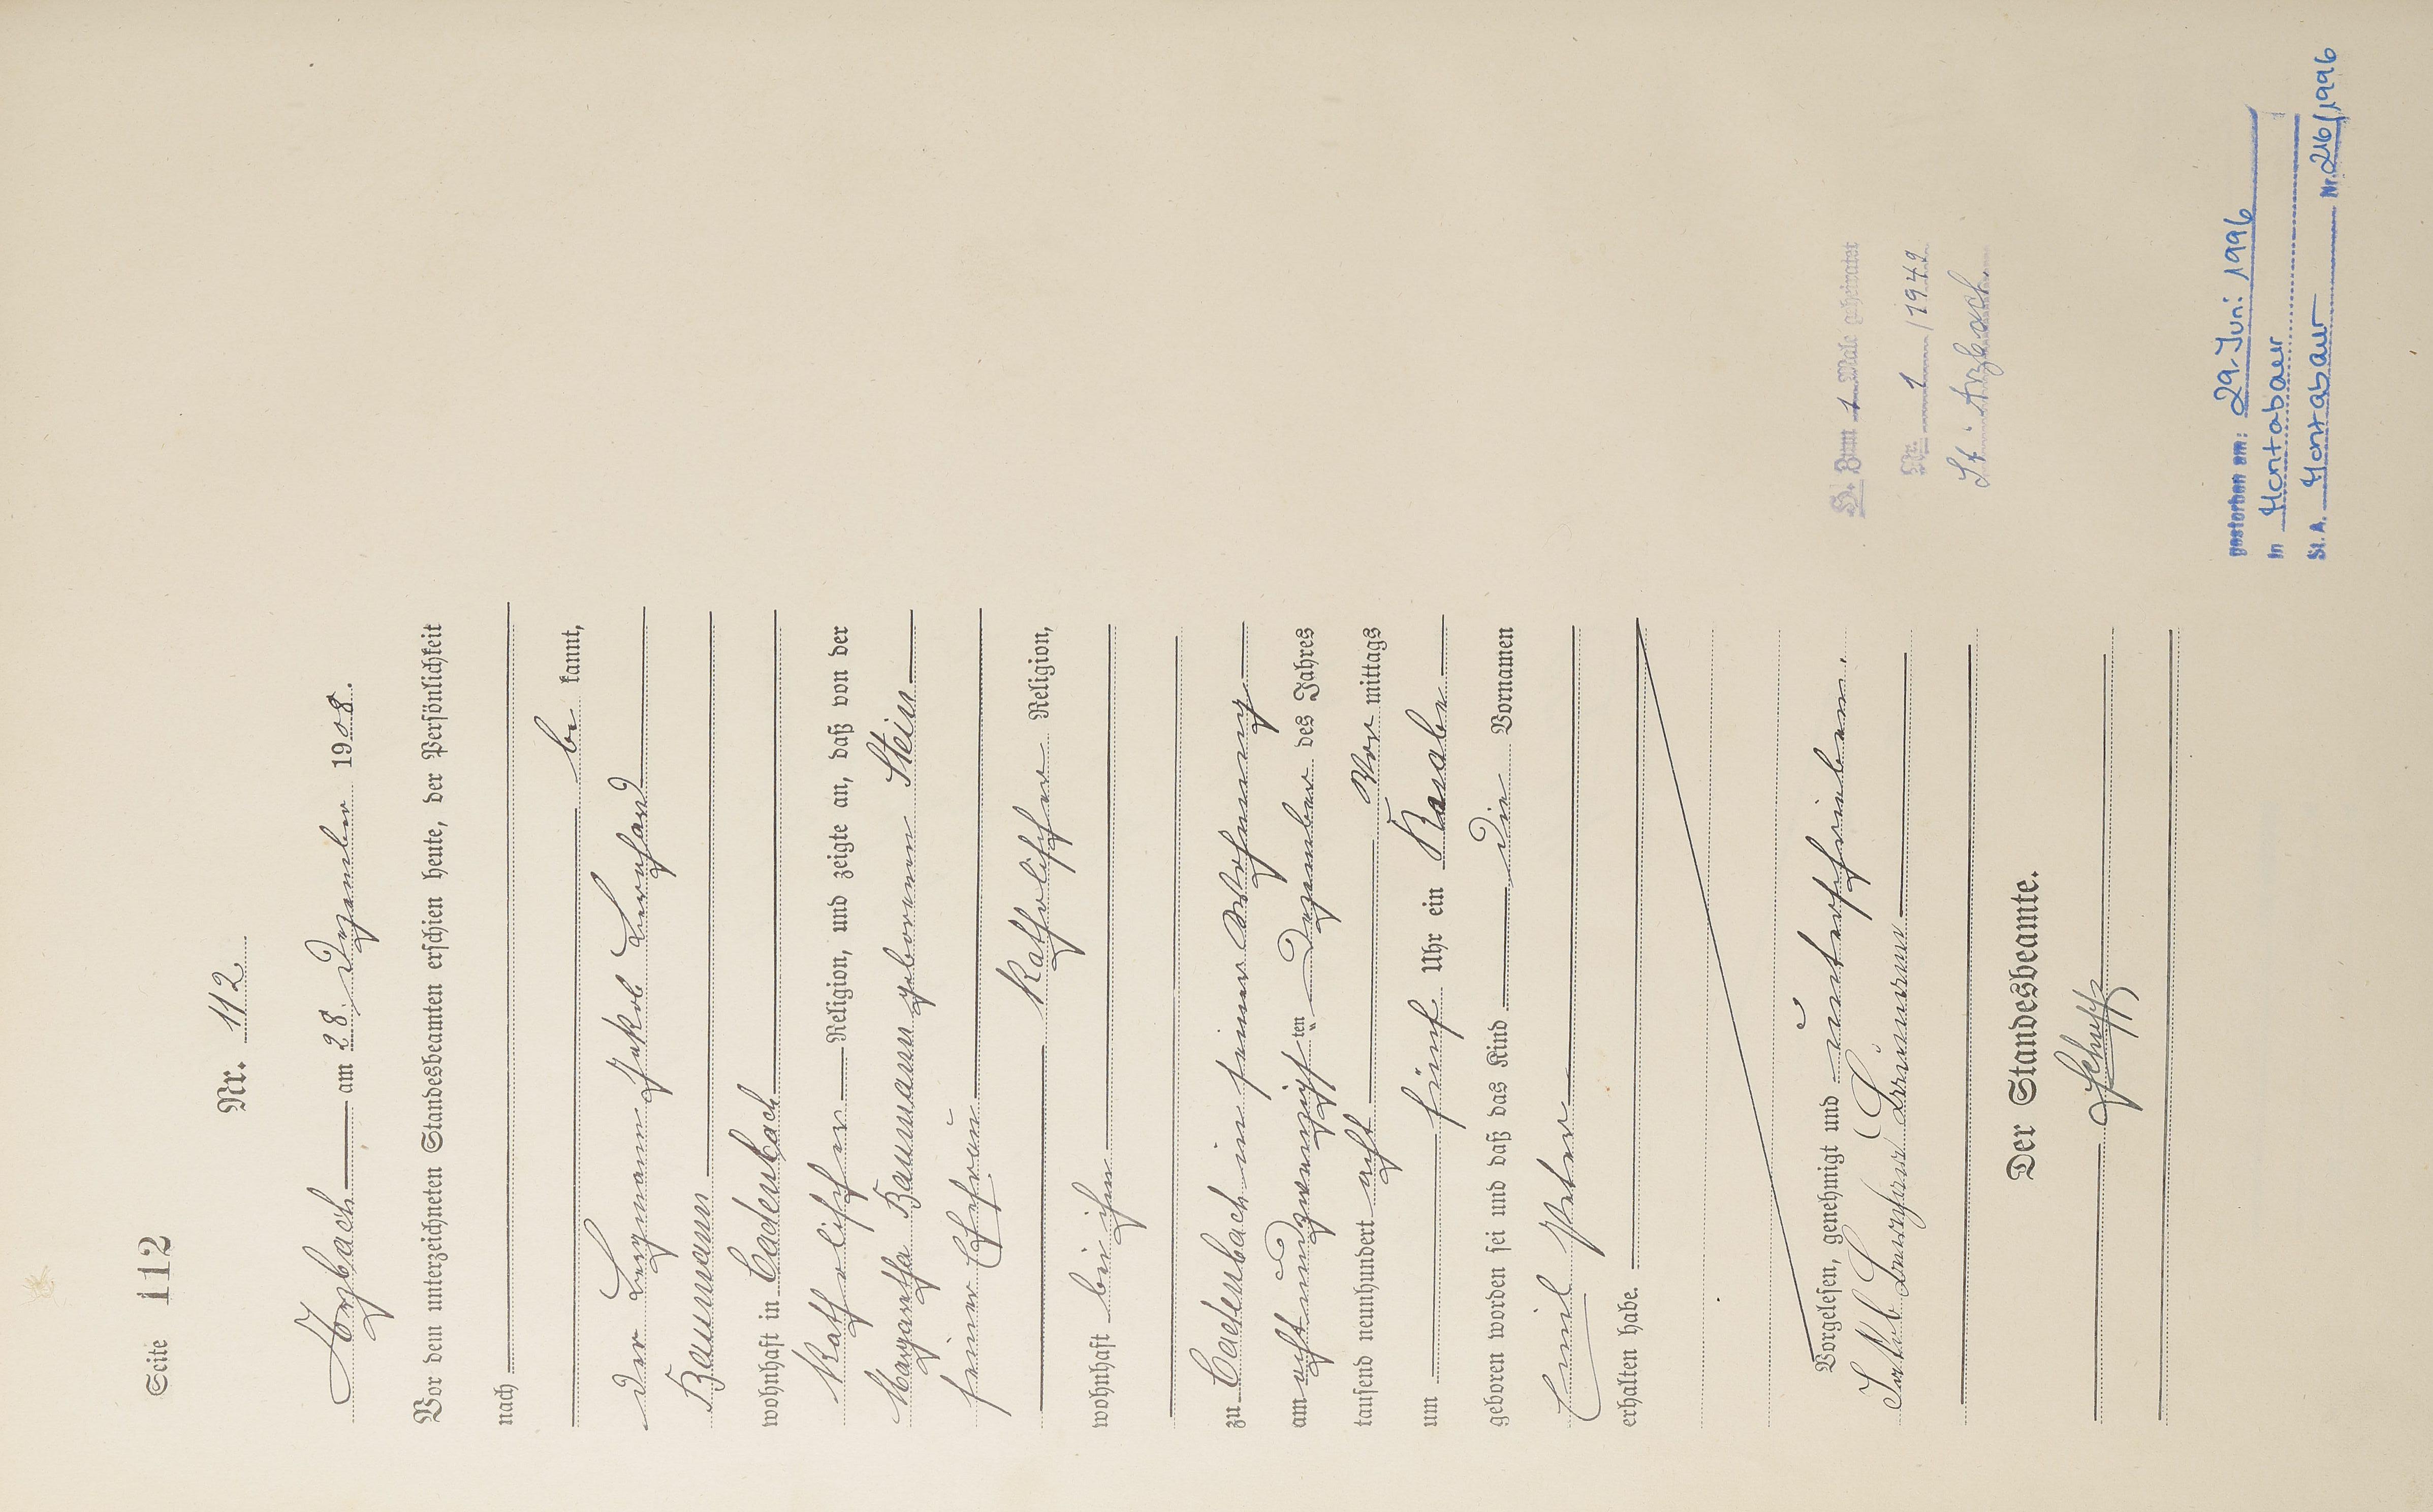 Seite 112
Nr. 112
Arzbach am 28. Dezember 1908.
Vor dem unterzeichneten Standesbeamten erschien heute, der Persönlichkeit
nach
be kannt,
der Bergmann Jakob Bernhard
Baumann
wohnhaft in Cadenbach
katholischer Religion, und zeigte an, daß von der
Margaretha Baumann geborenen Stein
seiner Ehefrau
katholischer Religion,
wohnhaft bei ihm
zu Cadenbach in seiner Wohnung
am achtundzwanzigsten Dezember des Jahres
tausend neunhundert acht Vor mittags
um fünf Uhr ein Knabe
geboren worden sei und daß das Kind die Vornamen
Emil Peter
erhalten habe.
Vorgelesen, genehmigt und unterschrieben.
Jakob Bernhard Baumann
Der Standesbeamte.
Zum 1 Male geheiratet
Nr. 1/1942
St. Arzbach
gestorben am: 29. Juni 1996
in Montabaur
St. A. Montabaur Nr. 216/1996